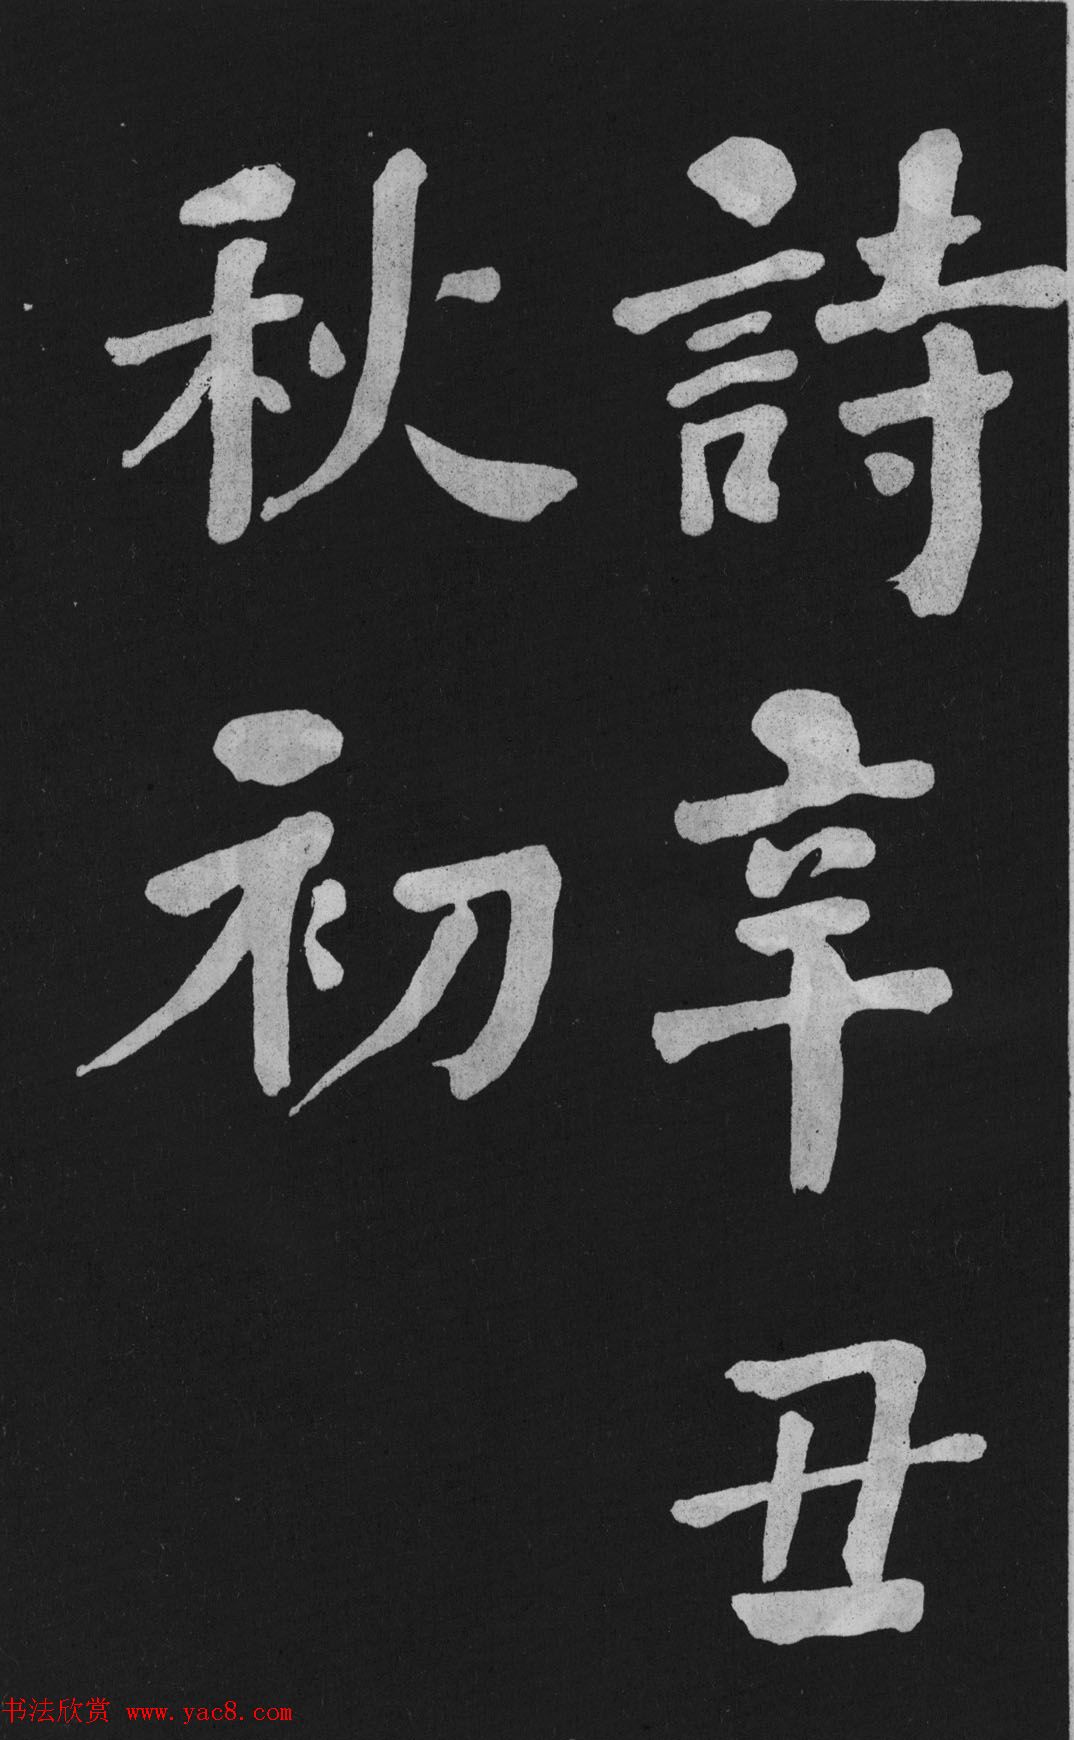 詩辛丑
秋初
书法欣赏 www.yac8.com